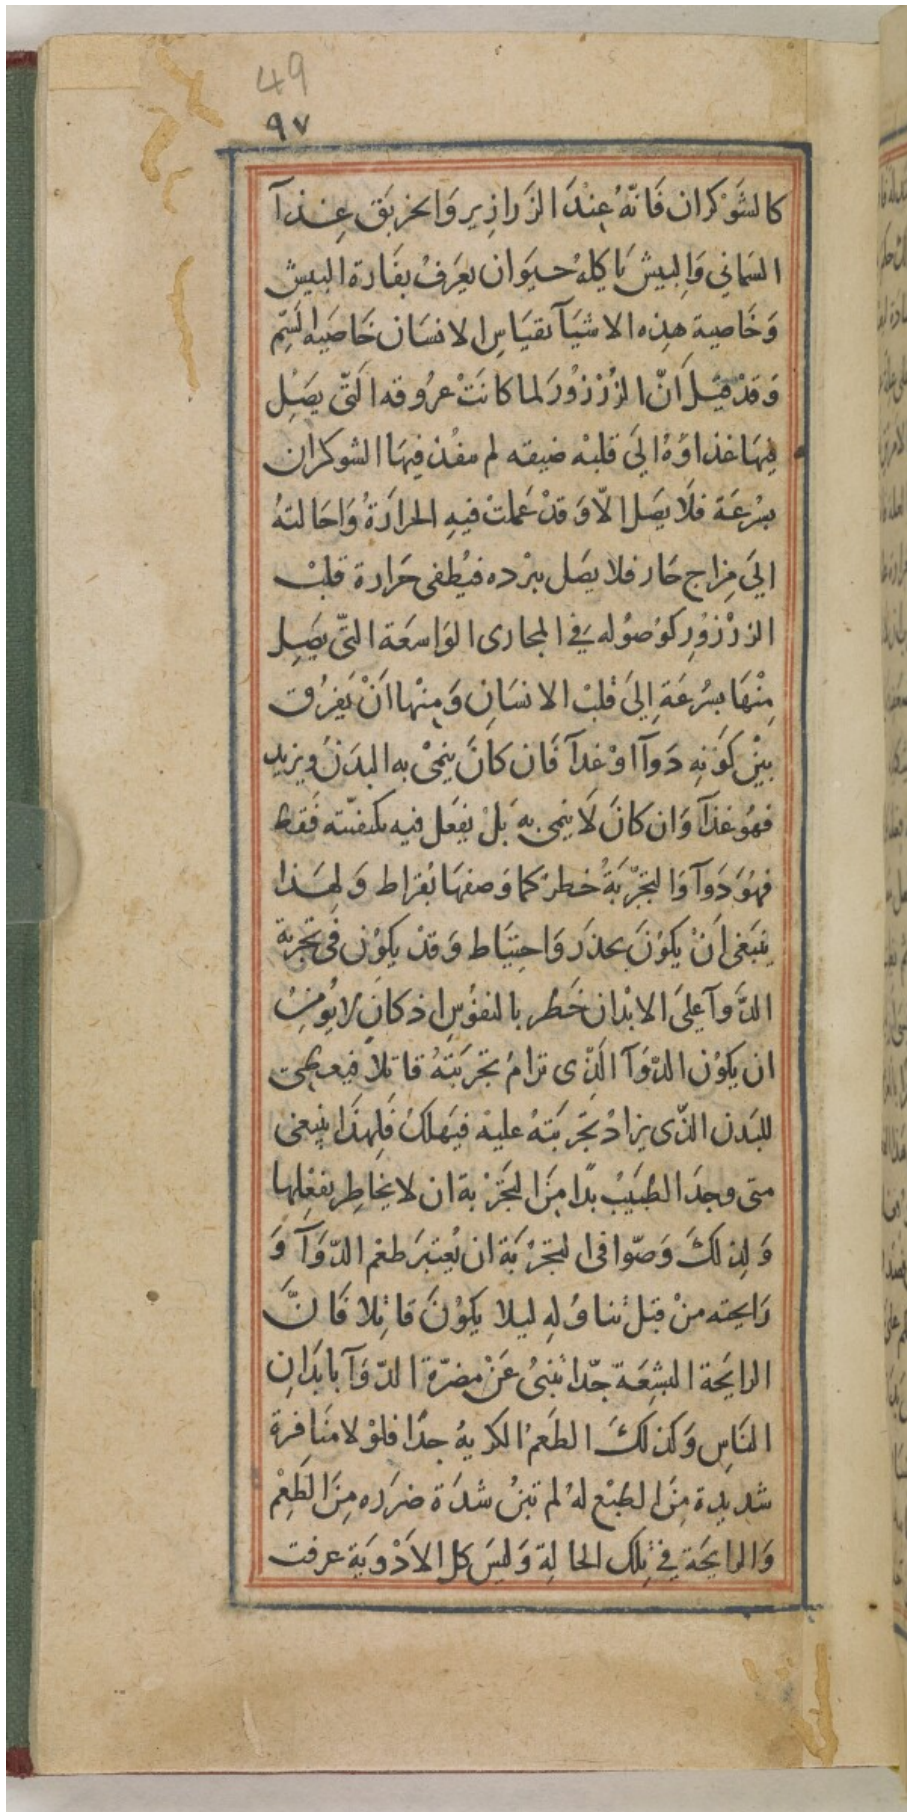 49
٩٧
كالشَوْكران فَانّهُ عِنْدَ الزَرازير وَالخربَق عِنذآ
السَماني وَالبيش يَاكلهُ حيَوان يعَرفْ بفَارة البيش
وَخَاصية هذِه الاشيَآ بقيَاسِ الانسَان خَاصيه السَمّ
وَقدْ قيَلَ اَنّ الزُرْزُورَ لما كانَتْ عرُوقه الَتّي يصَل
فيهَا غذاؤهُ الىَ قلبْه ضيقه لم ينفُذ فيهَا الشوكران
بسْرعَة فلَا يصَل الّا وَقدْ عَملت فيهِ الحرارَةُ وَاحَالتهُ
الىَ مِزاج حَار فلا يصَل ببرْده فيُطفى حَرارة قلبْ
الزرْزوُرِ كوُصوُله في المجارى الوَاسعَة التّي يصَل
مِنْهَا بسُرعَةِ اِلىَ قلبْ الانسَانِ وَمِنْها اَنْ يَفرُق
بينْ كوَنهِ دَوآ اوْ غذآ فَان كاَنَ ينمىْ به البدَنُ ويزيد
فهوُ غذآ وَان كانَ لَا ينمى بهِ بَلْ يفعَل فيه بكيفيّته فَقط
فهوَ دَوآ وَالتجرّبَةُ خطرْ كما وَصفهَا بُقراط وَلهَذا
ينبَغى اَنْ يكوُنَ بحذَر وَاحتيَاط وَقدْ يكوُن فى تجربة
الدَّوآ علىَ الابْدان خَطْر بالنفوُسِ اذ كانَ لا يُومِنُ
ان يكوُن الدّوَآ الَذّى ترَامُ تجَربَتهُ قاتلاً فيعطى
للبَدن الذّى يرَادُ تجَربَتهُ عليْه فيَهلَكُ فَلِهذَا ينبغى
متى وجدَ الطبَيبُ بدّا مِنَ التجَرْبة ان لا يخاطِر بفعِلها
وَلِذلكَ وَصّوا فى التجرْبَة ان يُعتبرَ طعْم الدّوَآ وَ
رَايحته منْ قبَل تناوُلِه ليلا يكوُنَ قاتِلا فَانَّ
الرايحَة البشِعَة جّدا تنبىُ عَنْ مضَرّة الدّوَآ بابدَانِ
النَاسِ وَكذلكَ الطعَمْ الكريهُ جدّا فلوْلا مَنَافرة
شديدة مِنَ الطبْع لهُ لم تبنُ شدَة ضرَره مِنَ الطَعْم
وَالرايحَة في تلِك الحالة وَليسَ كل الاَدْويَة عرفت